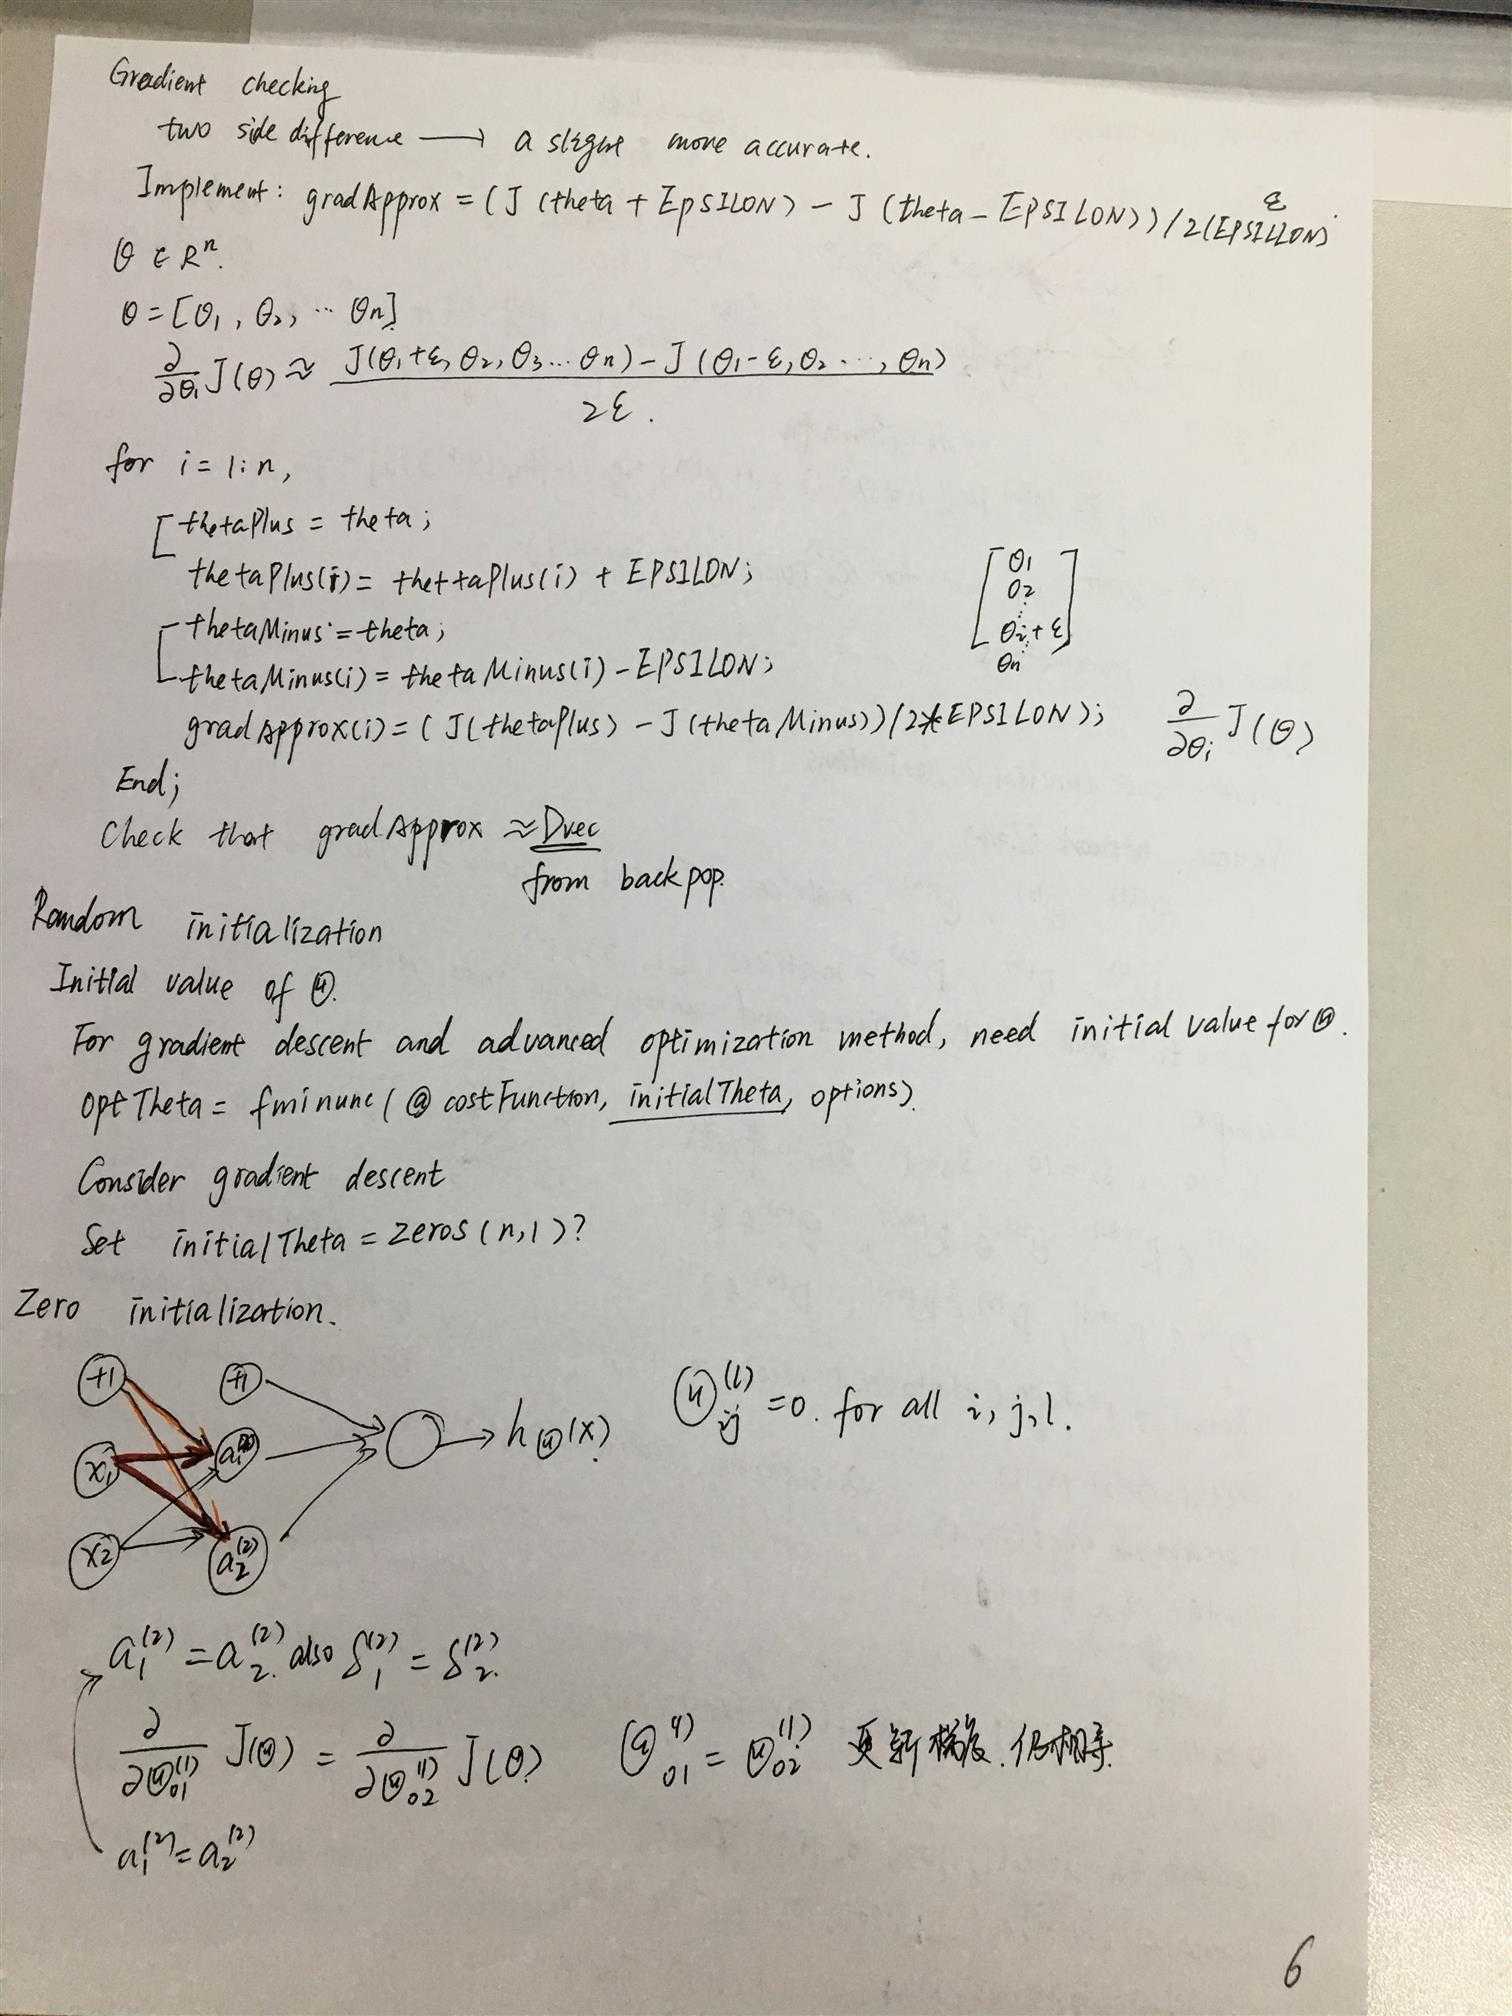 Gradient checking
two side difference → a slight more accurate.
Implement: gradApprox = (J (theta + EPSILON) - J (theta - EPSILON)) / 2(EPSILLON) ε
θ ∈ Rⁿ.
θ = [θ₁, θ₂, ... θn]
∂/∂θ₁ J(θ) ≈ (J(θ₁+ε, θ₂, θ₃... θn) - J(θ₁-ε, θ₂ ..., θn)) / 2ε.
for i = 1:n,
thetaPlus = theta;
thetaPlus(i) = thettaPlus(i) + EPSILON;
thetaMinus = theta;
thetaMinus(i) = thetaMinus(i) - EPSILON;
[θ1 θ2 ⋮ θi + ε θn]
gradApprox(i) = (J(thetaPlus) - J(thetaMinus))/2*EPSILON); ∂/∂θi J(θ)
End;
Check that gradApprox ≈ Dvec
from backpop.
Random initialization
Initial value of Θ.
For gradient descent and advanced optimization method, need initial value for Θ.
optTheta = fminunc(@costFunction, initialTheta, options).
Consider gradient descent
Set initialTheta = zeros(n,1)?
Zero initialization.
+1 +1
x₁ a₁⁽²⁾ → hΘ(x) Θij⁽ˡ⁾ = 0. for all i, j, l.
x₂ a₂⁽²⁾
a₁⁽²⁾ = a₂⁽²⁾ also δ₁⁽²⁾ = δ₂⁽²⁾.
∂/∂Θ₀₁⁽¹⁾ J(Θ) = ∂/∂Θ₀₂⁽¹⁾ J(Θ) Θ₀₁⁽¹⁾ = Θ₀₂⁽¹⁾ 更新梯度. 仍相等.
a₁⁽²⁾ = a₂⁽²⁾
6